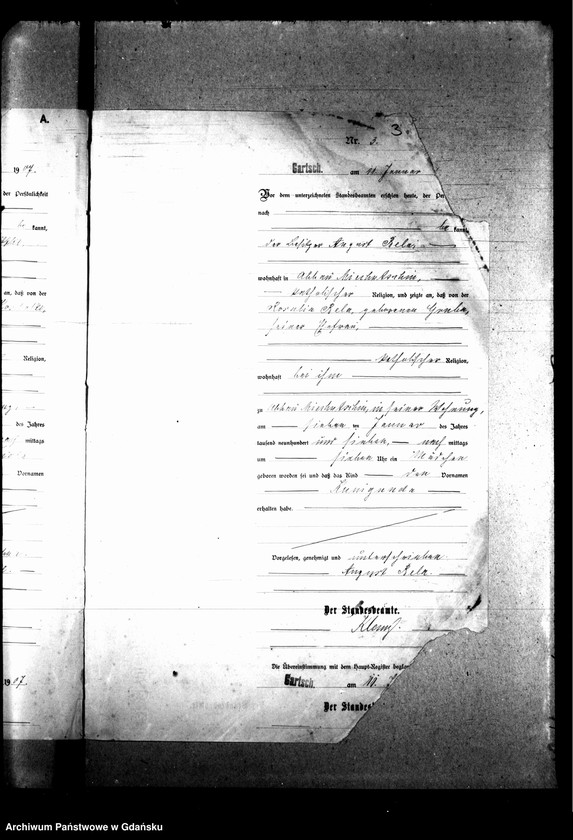 A.
1907.
der Persönlichkeit
kannt,
an, daß von der
Religion,
des Jahres
mittags
Vornamen
1907.
3
Nr. 3.
Gartsch, am 11. Januar
Vor dem unterzeichneten Standesbeamten erschien heute, der Per
nach
be kannt,
der Besitzer August Rela,
wohnhaft in Abbau
katholischer Religion, und zeigte an, daß von der
Rosalia Rela, geborenen
seiner Ehefrau,
katholischer Religion,
wohnhaft bei ihm
zu Abbau in seiner Wohnung,
am sieben ten Januar des Jahres
tausend neunhundert und sieben, nach mittags
um sieben Uhr ein Mädchen
geboren worden sei und daß das Kind den Vornamen
Kunigunde
erhalten habe.
Vorgelesen, genehmigt und unterschrieben
August Rela
Der Standesbeamte.
Die Übereinstimmung mit dem Haupt-Register beglau
Gartsch, am 11. J
Der Standes
Archiwum Państwowe w Gdańsku